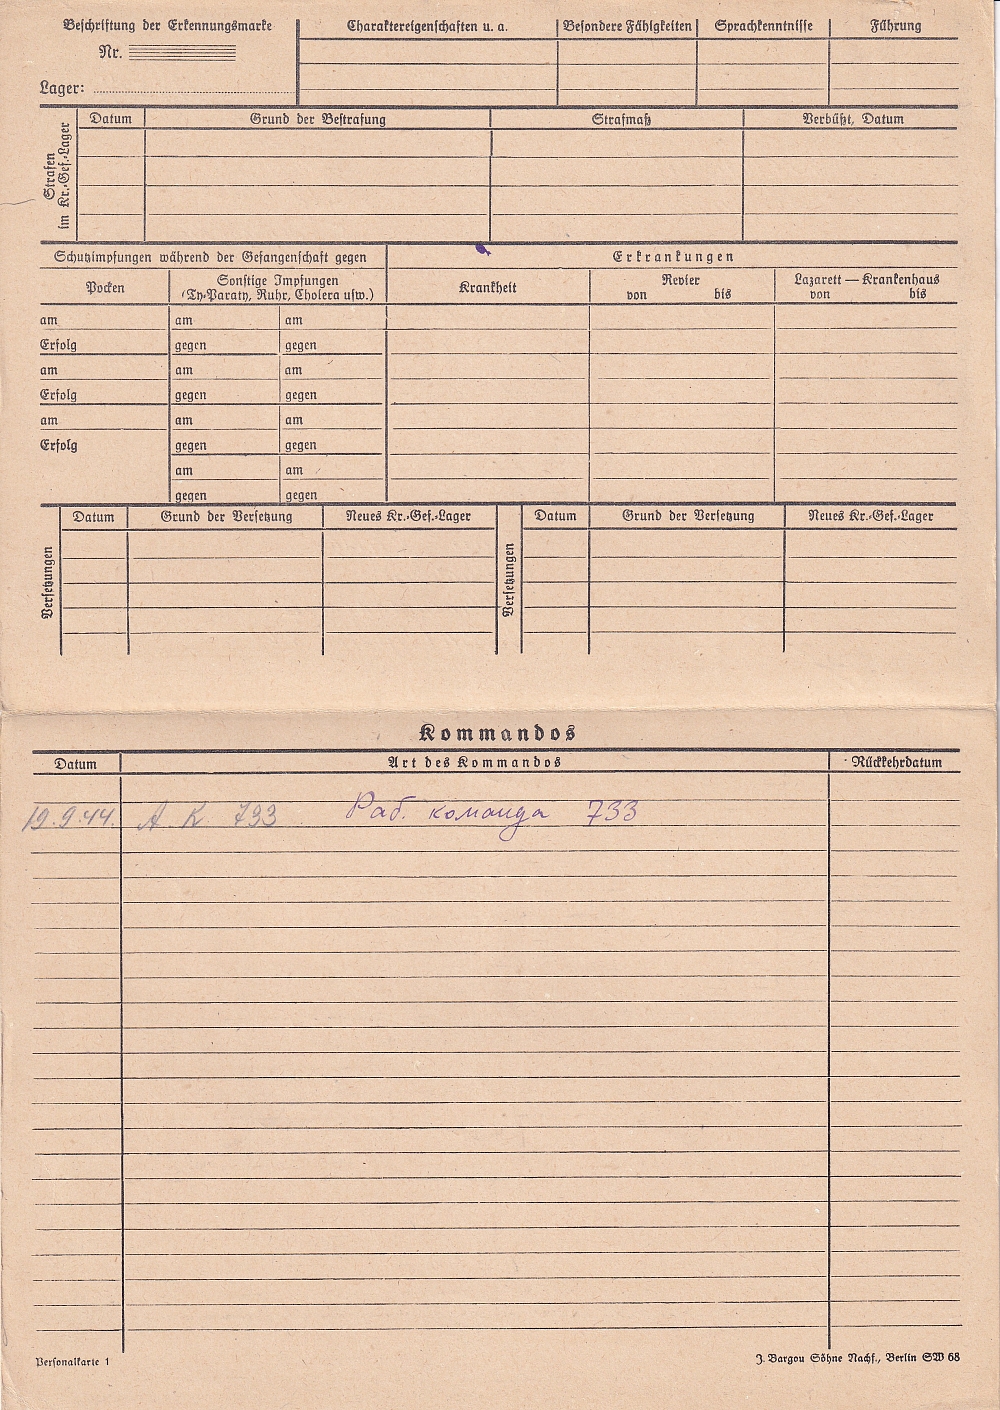 Beschriftung der Erkennungsmarke
Nr.
Lager:
Charaktereigenschaften u. a. Besondere Fähigkeiten Sprachkenntnisse Führung
Strafen
im Kr.-Gef.-Lager
Datum Grund der Bestrafung Strafmaß Verbüßt, Datum
Schutzimpfungen während der Gefangenschaft gegen
Erkrankungen
Pocken
Sonstige Impfungen
(Ty-Paraty, Ruhr, Cholera usw.)
Krankheit
Revier
von bis
Lazarett — Krankenhaus
von bis
am am am
Erfolg gegen gegen
am am am
Erfolg gegen gegen
am am am
Erfolg gegen gegen
am am
gegen gegen
Versetzungen
Datum Grund der Versetzung Neues Kr.-Gef.-Lager
Versetzungen
Datum Grund der Versetzung Neues Kr.-Gef.-Lager
Kommandos
Datum Art des Kommandos Rückkehrdatum
19.9.44. A K 733 Раб. команда 733
Personalkarte 1
J. Bargou Söhne Nachf., Berlin SW 68